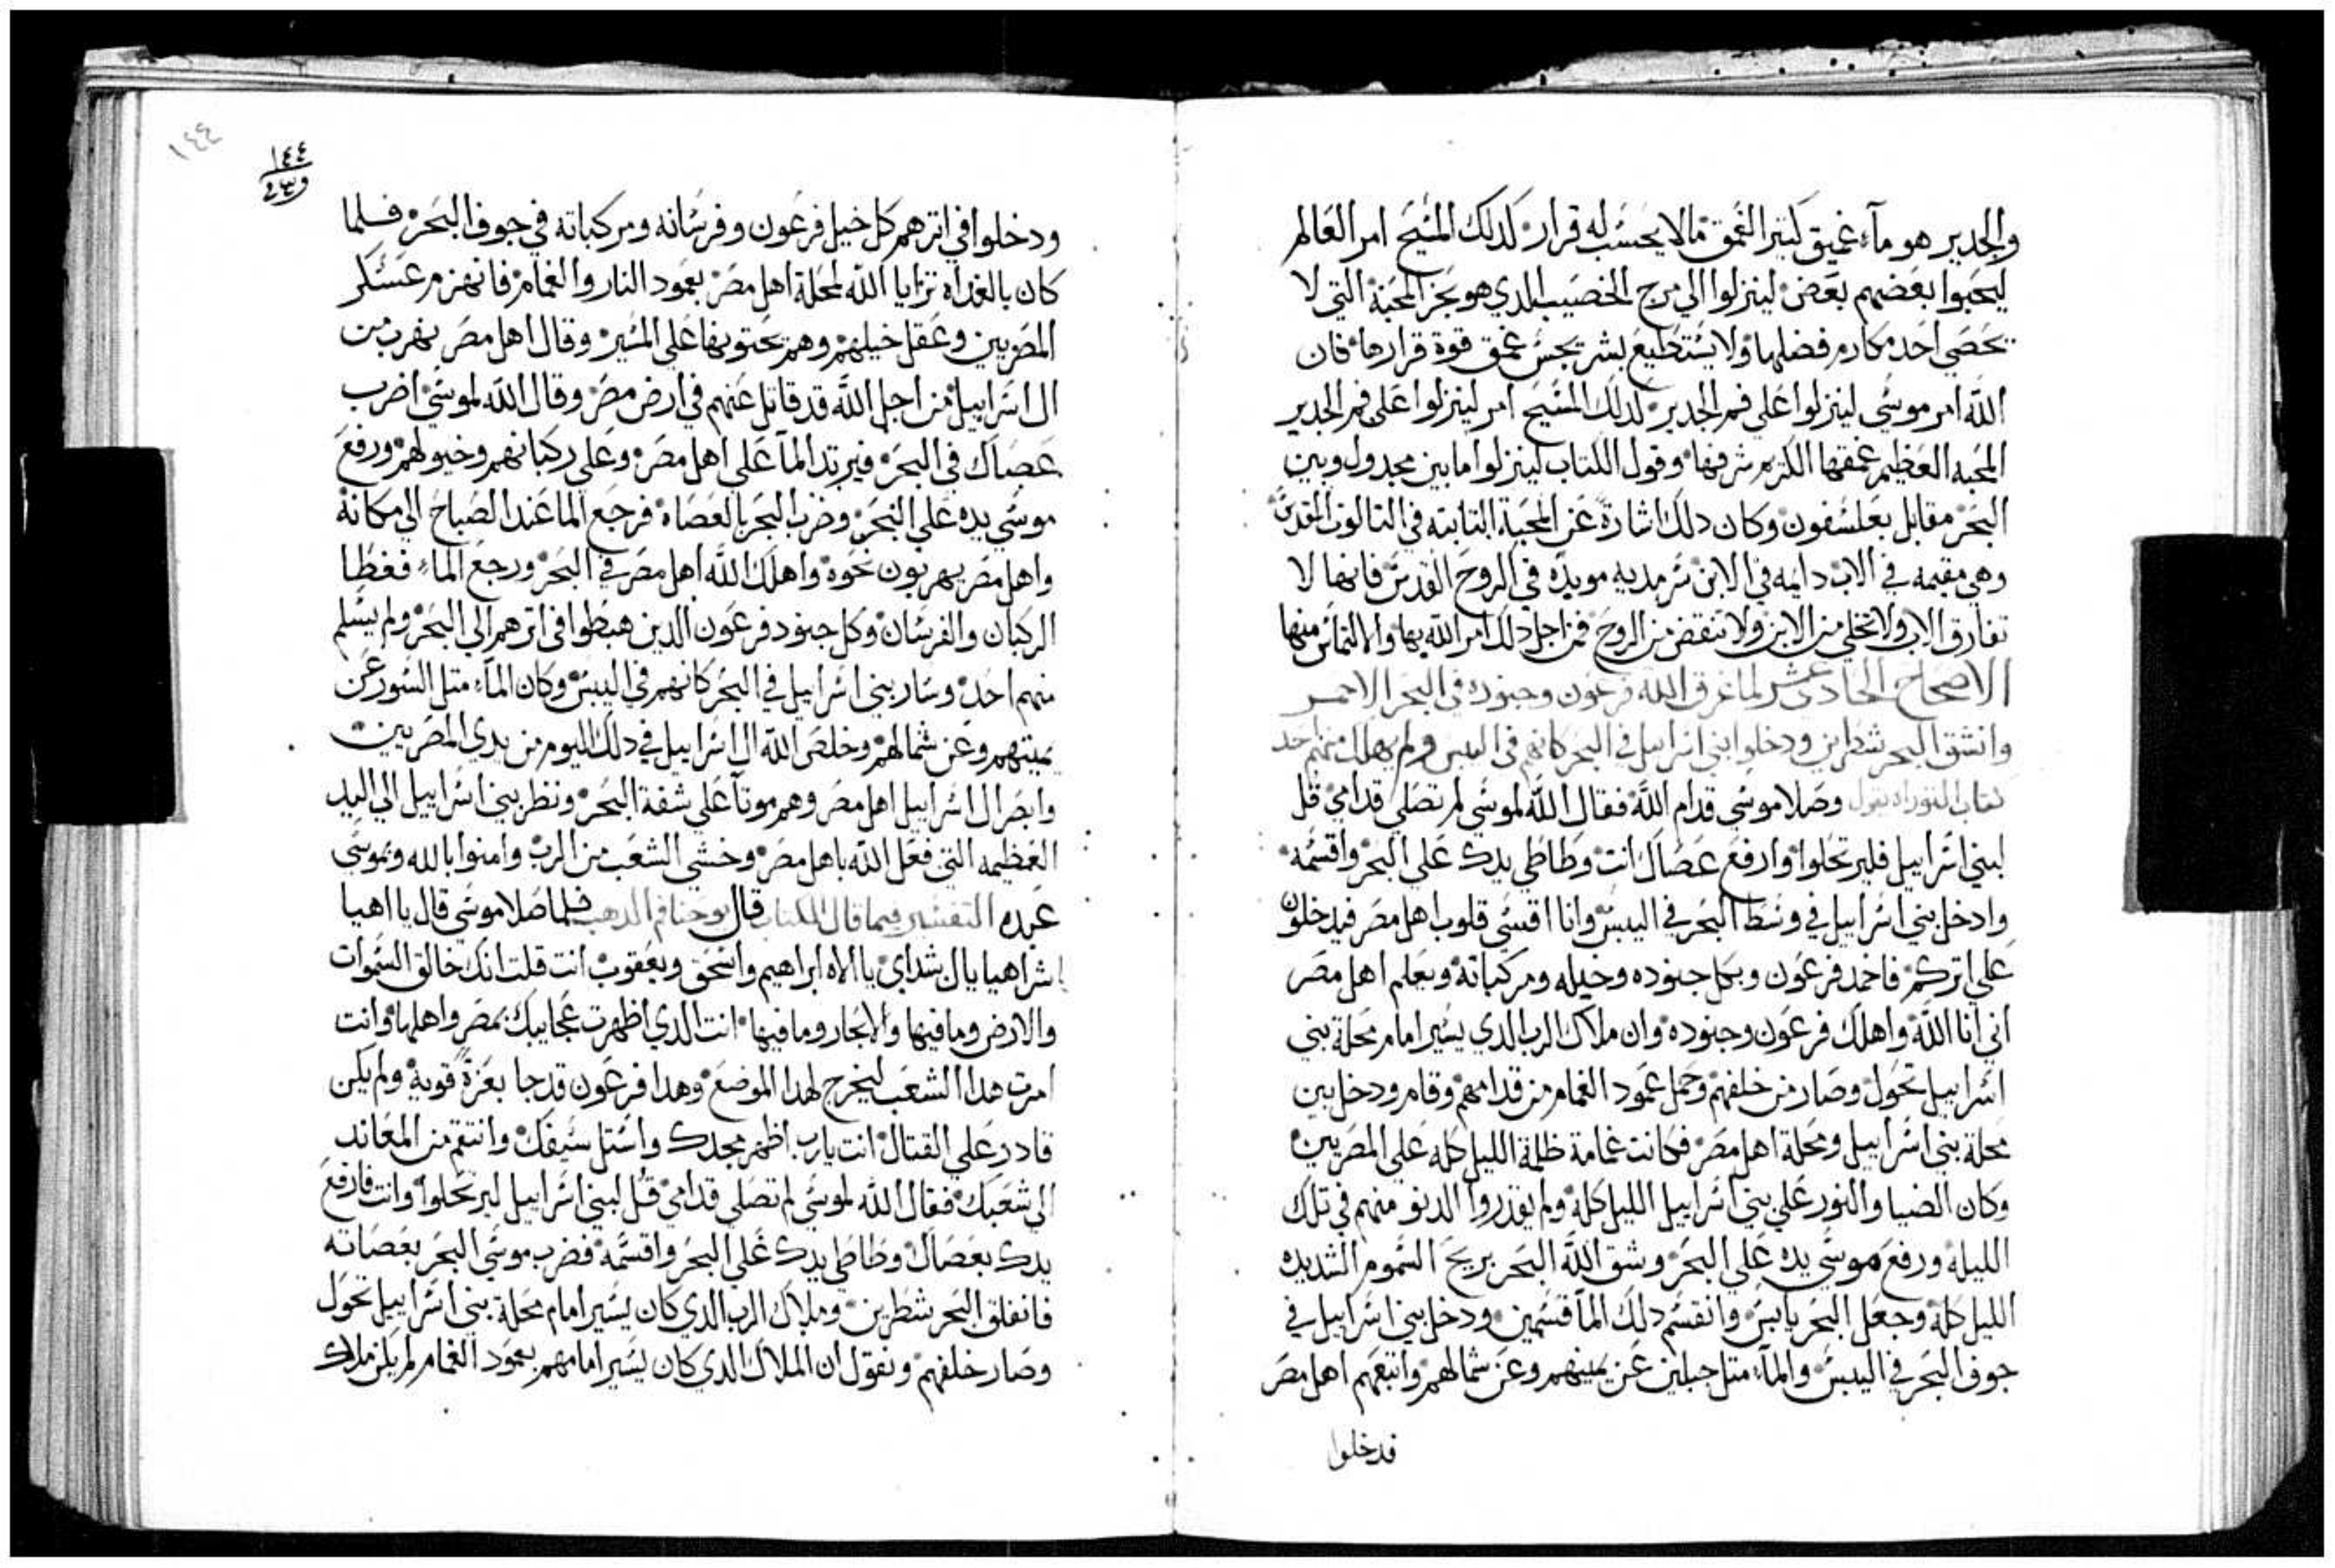 والجدير هو مآء غميق كتير الغمق ما لا يحسب له قرار كدلك المسيح امر العالم
ليحبوا بعضهم بعض لينزلوا الي مرج الخصيب الدي هو بحر المحبة التي لا
يحصي احد مكارم فضلها ولا يستطيع بشر يجس غمق قوة قرارها فان
الله امر موسي لينزلوا علي فم الجدير لدلك المسيح امر لينزلوا علي فم الجدير
المحبه العظيم غمقها الكتير شرفها وقول الكتاب لينزلوا ما بين مجدول وبين
البحر مقابل بعلسفون وكان دلك اشارة عن المحبة التابته في التالوت المقدس
وهي مقيمه في الاب دايمه في الابن سرمديه مويده في الروح القدس فانها لا
تفارق الاب ولا تخلي من الابن ولا تنقض من الروح فمن اجل دلك امر الله بها والالتماس منها
الاصحاح الحادي عشر لما غرق الله فرعون وجنوده في البحر الاحمر
وانشق البحر شطرين ودخلوا بني اسراييل في البحر كانهم في اليبس ولم يهلك منهم احد
كتاب التوراه يقول وصلا موسي قدام الله فقال الله لموسي لم تصلي قدامي قل
لبني اسراييل فليرتحلوا وارفع عصاك انت وطاطي يدك علي البحر واقسمه
وادخل بني اسراييل في وسط البحر في اليبس وانا اقسي قلوب اهل مصر فيدخلون
علي اتركم فاخمد فرعون وبكل جنوده وخيله ومركباته ويعلم اهل مصر
اني انا الله واهلك فرعون وجنوده وان ملاك الرب الدي يسير امام محلة بني
اسراييل تحول وصار من خلفهم وحمل عمود الغمام من قدامهم وقام ودخل بين
محلة بني اسراييل ومحلة اهل مصر فكانت غمامة ظلمة الليل كله علي المصريين
وكان الضيا والنور علي بني اسراييل الليل كله ولم يقدروا الدنو منهم في تلك
الليله ورفع موسي يده علي البحر وشق الله البحر بريح السموم الشديده
الليل كله وجعل البحر يابس وانقسم دلك المآ قسمين ودخل بني اسراييل في
جوف البحر في اليبس والمآء متل جبلين عن يمينهم وعن شمالهم واتبعهم اهل مصر
فدخلوا
١٤٤
١٤٤
ودخلوا في اترهم كل خيل فرعون وفرسانه ومركباته في جوف البحر فلما
كان بالغداه ترايا الله لمحلة اهل مصر بعمود النار والغمام فانهزم عسكر
المصريين وعقل خيلهم وهم يحتونها علي المسير وقال اهل مصر نهرب من
ال اسراييل من اجل الله قد قاتل عنهم في ارض مصر وقال الله لموسي اضرب
عصاك في البحر فيرتد المآ علي اهل مصر وعلي ركبانهم وخيولهم ورفع
موسي يده علي البحر وضرب البحر بالعصاه فرجع الما عند الصباح الي مكانه
واهل مصر يهربون نحوه واهلك الله اهل مصر في البحر ورجع الماء فغطا
الركبان والفرسان وكل جنود فرعون الدين هبطوا في اترهم الي البحر ولم يسلم
منهم احد وسار بني اسراييل في البحر كانهم في اليبس وكان المآء متل السور عن
يمينهم وعن شمالهم وخلص الله ال اسراييل في دلك اليوم من يدي المصريين
وابصر ال اسراييل اهل مصر وهم موتآ علي شفة البحر ونظر بني اسراييل الي اليد
العظيمه التي فعل الله باهل مصر وخشي الشعب من الرب وامنوا بالله وبموسي
عبده التفسير فيما قال الكتاب قال يوحنا فم الدهب فلما صلا موسي قال يا اهيا
اشراهيا يا ال شداي يا الاه ابراهيم واسحق ويعقوب انت قلت انك خالق السموات
والارض وما فيها والابحار وما فيها انت الدي اظهرت عجايبك بمصر واهلها وانت
امرت هدا الشعب ليخرج لهدا الموضع وهدا فرعون قد جا بعزة قوية ولم يكن
قادر علي القتال انت يارب اظهر مجدك واستل سيفك وانتقم من المعاند
الي شعبك فقال الله لموسي لم تصلي قدامي قل لبني اسراييل ليرتحلوا وانت فارفع
يدك بعصاك وطاطي يدك علي البحر واقسمه فضرب موسي البحر بعصاته
فانفلق البحر شطرين وملاك الرب الدي كان يسير امام محلة بني اسراييل تحول
وصار خلفهم ونقول ان الملاك الدي كان يسير امامهم بعمود الغمام لم يكن ملاك